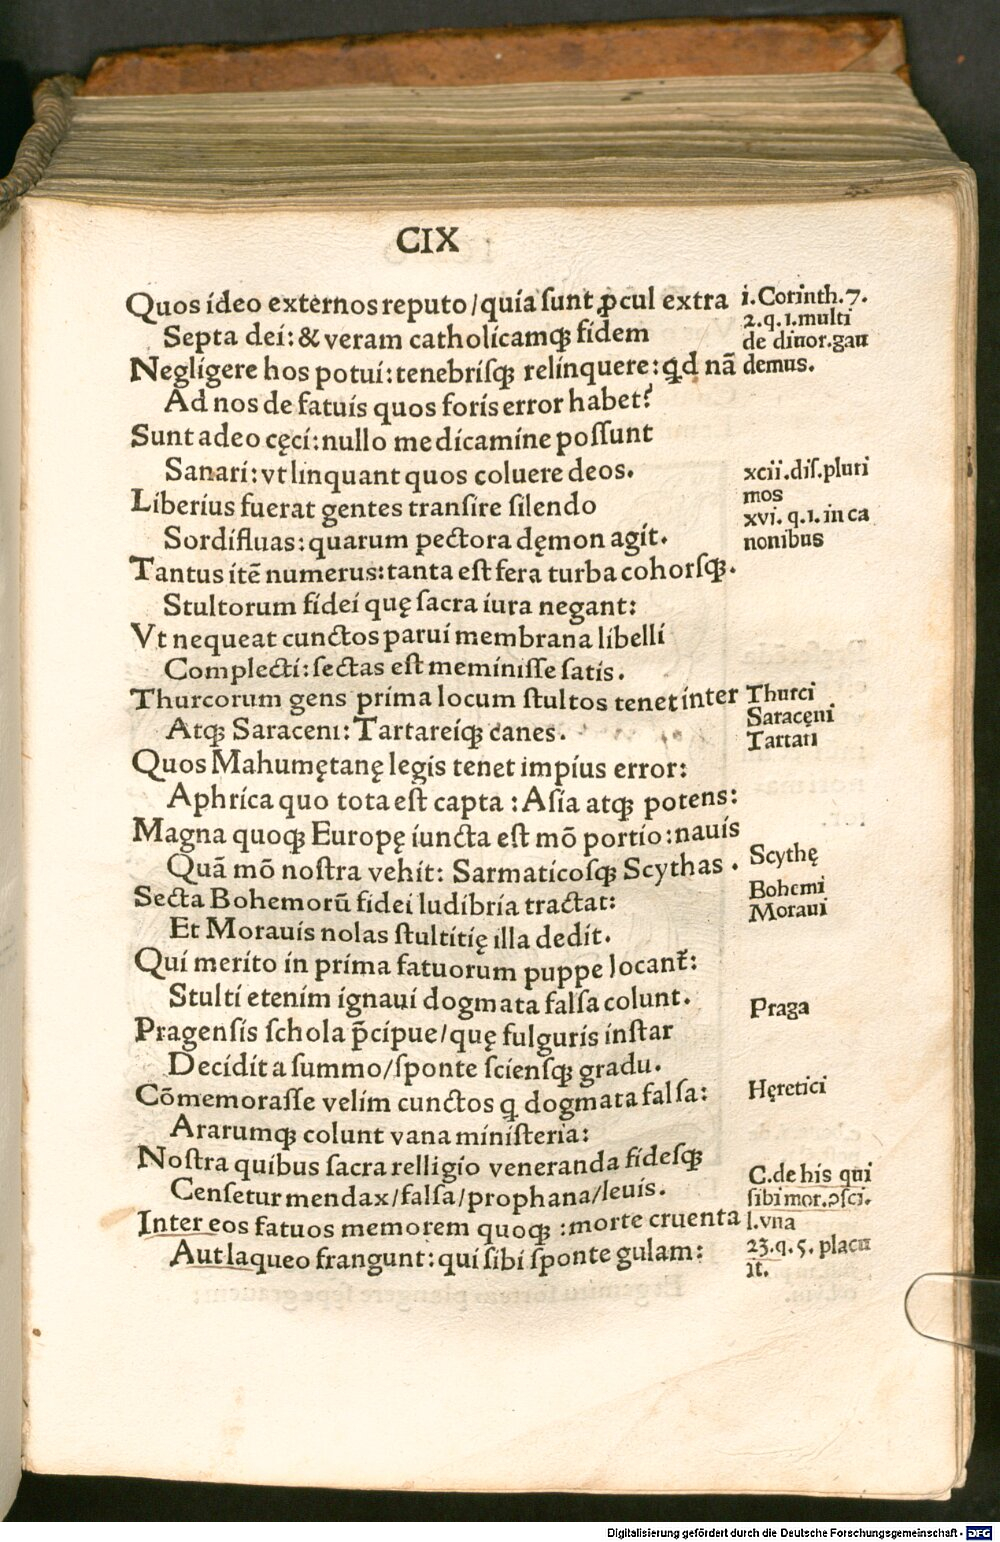 CIX
Quos ideo externos reputo/quia sunt ꝓcul extra
Septa dei:& veram catholicamqꝫ fidem
Negligere hos potui:tenebrisqꝫ relinquere:qd nã
Ad nos de fatuis quos foris error habet?
Sunt adeo cęci:nullo medicamine possunt
Sanari:vt linquant quos coluere deos.
Liberius fuerat gentes transire silendo
Sordifluas:quarum pectora dęmon agit.
Tantus itẽ numerus:tanta est fera turba cohorsqꝫ.
Stultorum fidei quę sacra iura negant:
Vt nequeat cunctos parui membrana libelli
Complecti:sectas est meminisse satis.
Thurcorum gens prima locum stultos tenet inter
Atqꝫ Saraceni: Tartareiqꝫ canes.
Quos Mahumętanę legis tenet impius error:
Aphrica quo tota est capta : Asia atqꝫ potens:
Magna quoqꝫ Europę iuncta est mõ portio:nauis
Quã mõ nostra vehit: Sarmaticosqꝫ Scythas.
Secta Bohemorũ fidei ludibria tractat:
Et Morauis nolas stultitię illa dedit.
Qui merito in prima fatuorum puppe locant᷑:
Stulti etenim ignaui dogmata falsa colunt.
Pragensis schola p̃cipue/quę fulguris instar
Decidit a summo/sponte sciensqꝫ gradu.
Cõmemorasse velim cunctos q dogmata falsa:
Ararumqꝫ colunt vana ministeria:
Nostra quibus sacra relligio veneranda fidesqꝫ
Censetur mendax/falsa/prophana/leuis.
Inter eos fatuos memorem quoqꝫ :morte cruenta
Aut laqueo frangunt:qui sibi sponte gulam:
i.Corinth.7.
2.q.1.multi
de diuor.gau
demus.
xcii.dis.pluri
mos
xvi. q.1. in ca
nonibus
Thurci
Saracęni
Tartari
Scythę
Bohemi
Moraui
Praga
Hęretici
C.de his qui
sibi mor.ↄsci.
l.vna
23.q.5. placu
it.
Digitalisierung gefördert durch die Deutsche Forschungsgemeinschaft - DFG